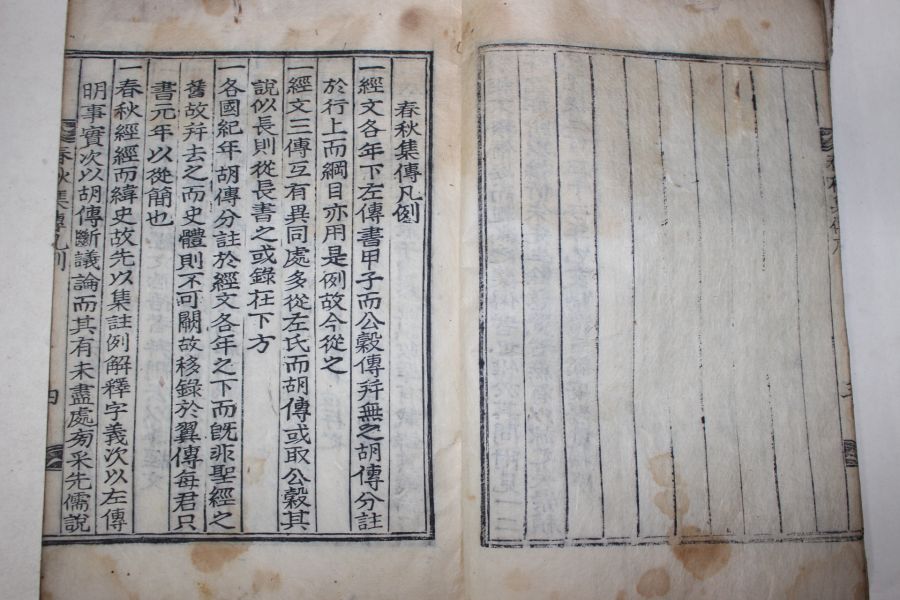 春秋集傳凡例
一經文各年下左傳書甲子而公穀傳幷無之胡傳分註
於行上而綱目亦用是例故今從之
一經文三傳互有異同處多從左氏而胡傳或取公穀其
說似長則從長書之或錄在下方
一各國紀年胡傳分註於經文各年之下而旣非聖經之
舊故幷去之而史體則不可闕故移錄於翼傳每君只
書元年以從簡也
一春秋經經而緯史故先以集註例解釋字義次以左傳
明事實次以胡傳斷議論而其有未盡處菊采先儒說
春秋集傳凡例
四